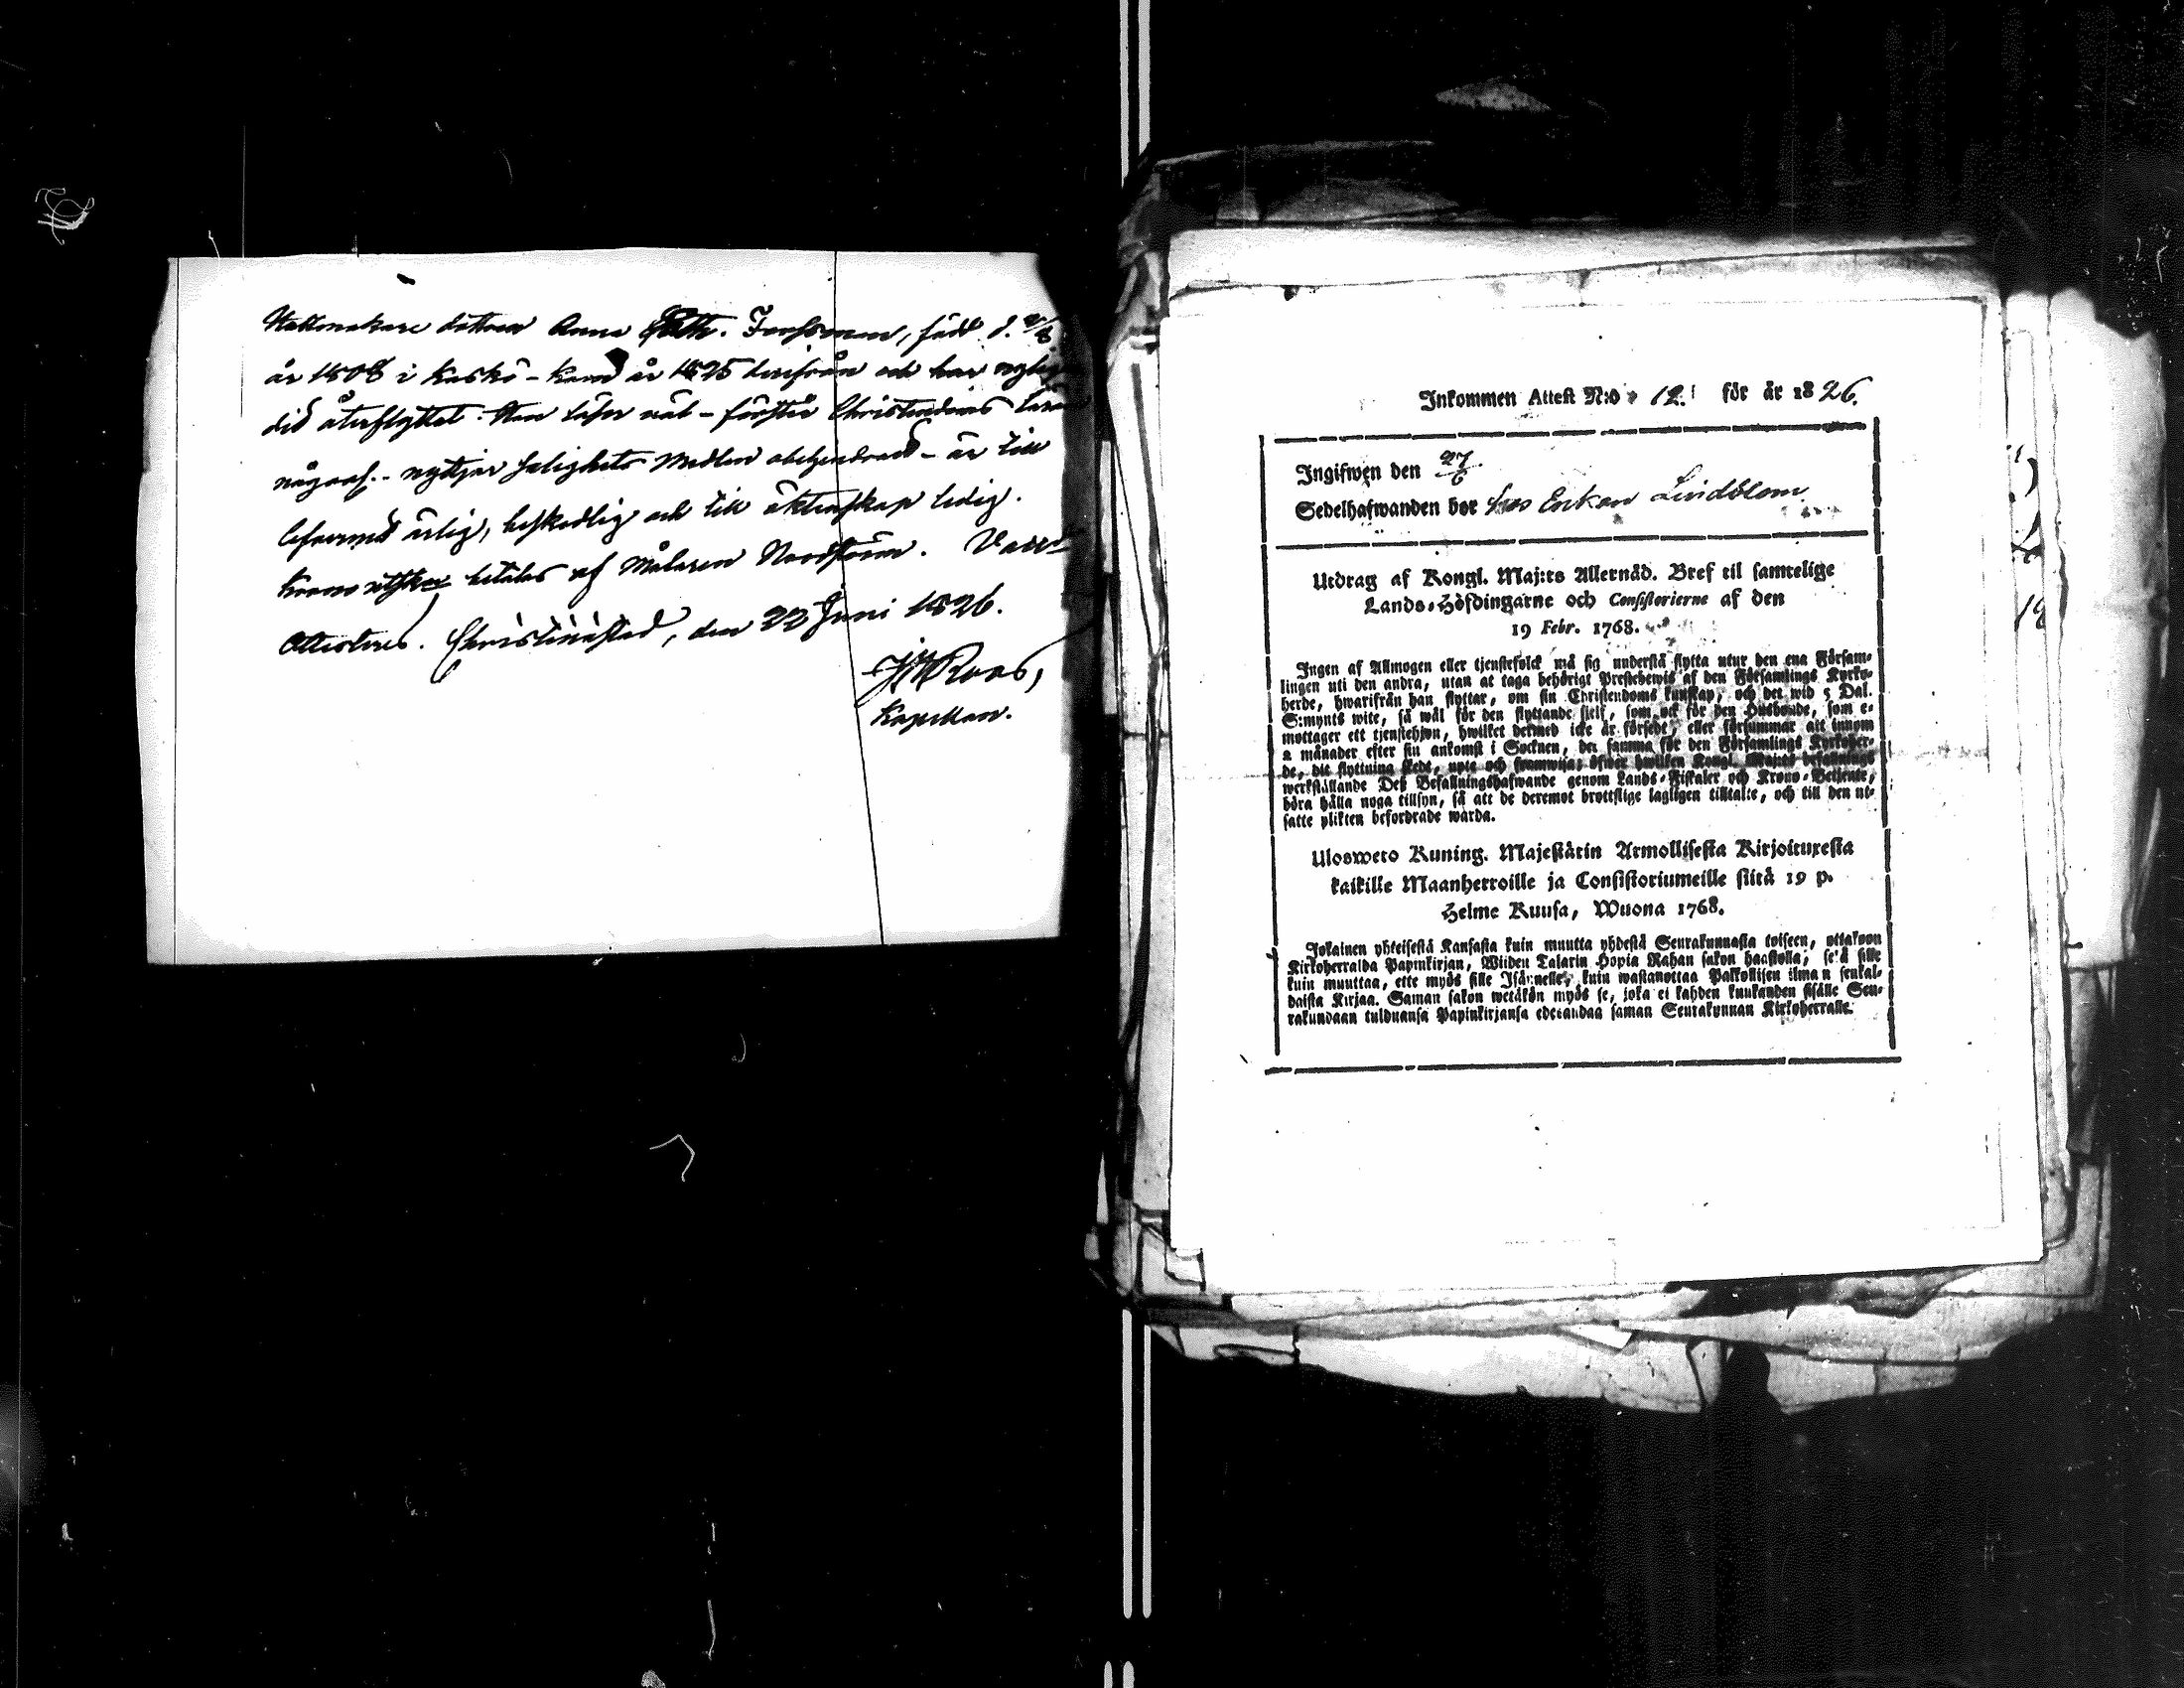 Hattmakare dottren Anna Cath. Forssman, född d.
år 1808 i Kaskö - kom år 1825 derifrån och har nyligen
did återflyttat. Hon läser väl - förstår Christendoms Läran
någraf. - nyttjar salighets medlen obehindrad - är till
lefvernet ärlig, beskedlig och till äktenskap ledig.
Krono utskr betalas af Målaren Nordström.
Attesteras. Christinæstad, den 22 Juni 1826.
Roos,
Kapellan.
Inkommen Attest N:o 12. för år 1826.
Ingifwen den 27/6
Sedelhafwanden bor hos Enkan Lindblom
Utdrag af Kongl. Maj:ts Allernåd. Bref til samtelige
Lands-Höfdingarne och Consistorierne af den
19 Febr. 1768.
Ingen af Allmogen eller tjenstefolck må sig understå flytta utur den ena Försam-
lingen uti den andra, utan at taga behörigt Prestebewis af den Församlings Kyrko-
herde, hwarifrån han flyttar, om sin Christendoms kunskap, och det wid 5 Dal.
S:mynts wite, så wäl för den flyttande sielf, som ock för den Husbonde, som e-
mottager ett tjenstehjon, hwilket dermed icke är försedt, eller försummar att innom
2 månader efter sin ankomst i Socknen, det samma för den Församlings Kyrkoher-
de, dit flyttning skedt, upte och framwisa; öfwer hwilken Kongl. Maj:ts befallnings
werkställande Deß Befallningshafwande genom Lands-Fiskaler och Krono-Betjente,
böra hålla noga tillsyn, så att de deremot brottslige lagligen tilltalte, och till den ut-
satte plikten befordrade warda.
Ulosweto Kuning. Majestätin Armollisesta Kirjoituxesta
kaikille Maanherroille ja Consistoriumeille siitä 19 p.
Helme Kuusa, Wuona 1768.
Jokainen yhteisestä Kansasta kuin muutta yhdestä Seurakunnasta toiseen, ottakoon
Kirkoherralda Papinkirjan, Wiiden Talarin Hopia Rahan sakon haastolla, sekä sille
kuin muuttaa, ette myös sille Isännelle, kuin wastanottaa Palkollisen ilman senkal-
daista Kirjaa. Saman sakon wetäkön myös se, joka ei kahden kuukauden sisälle Seu-
rakundaan tulduansa Papinkirjansa edesandaa saman Seurakunnan Kirkoherralle.